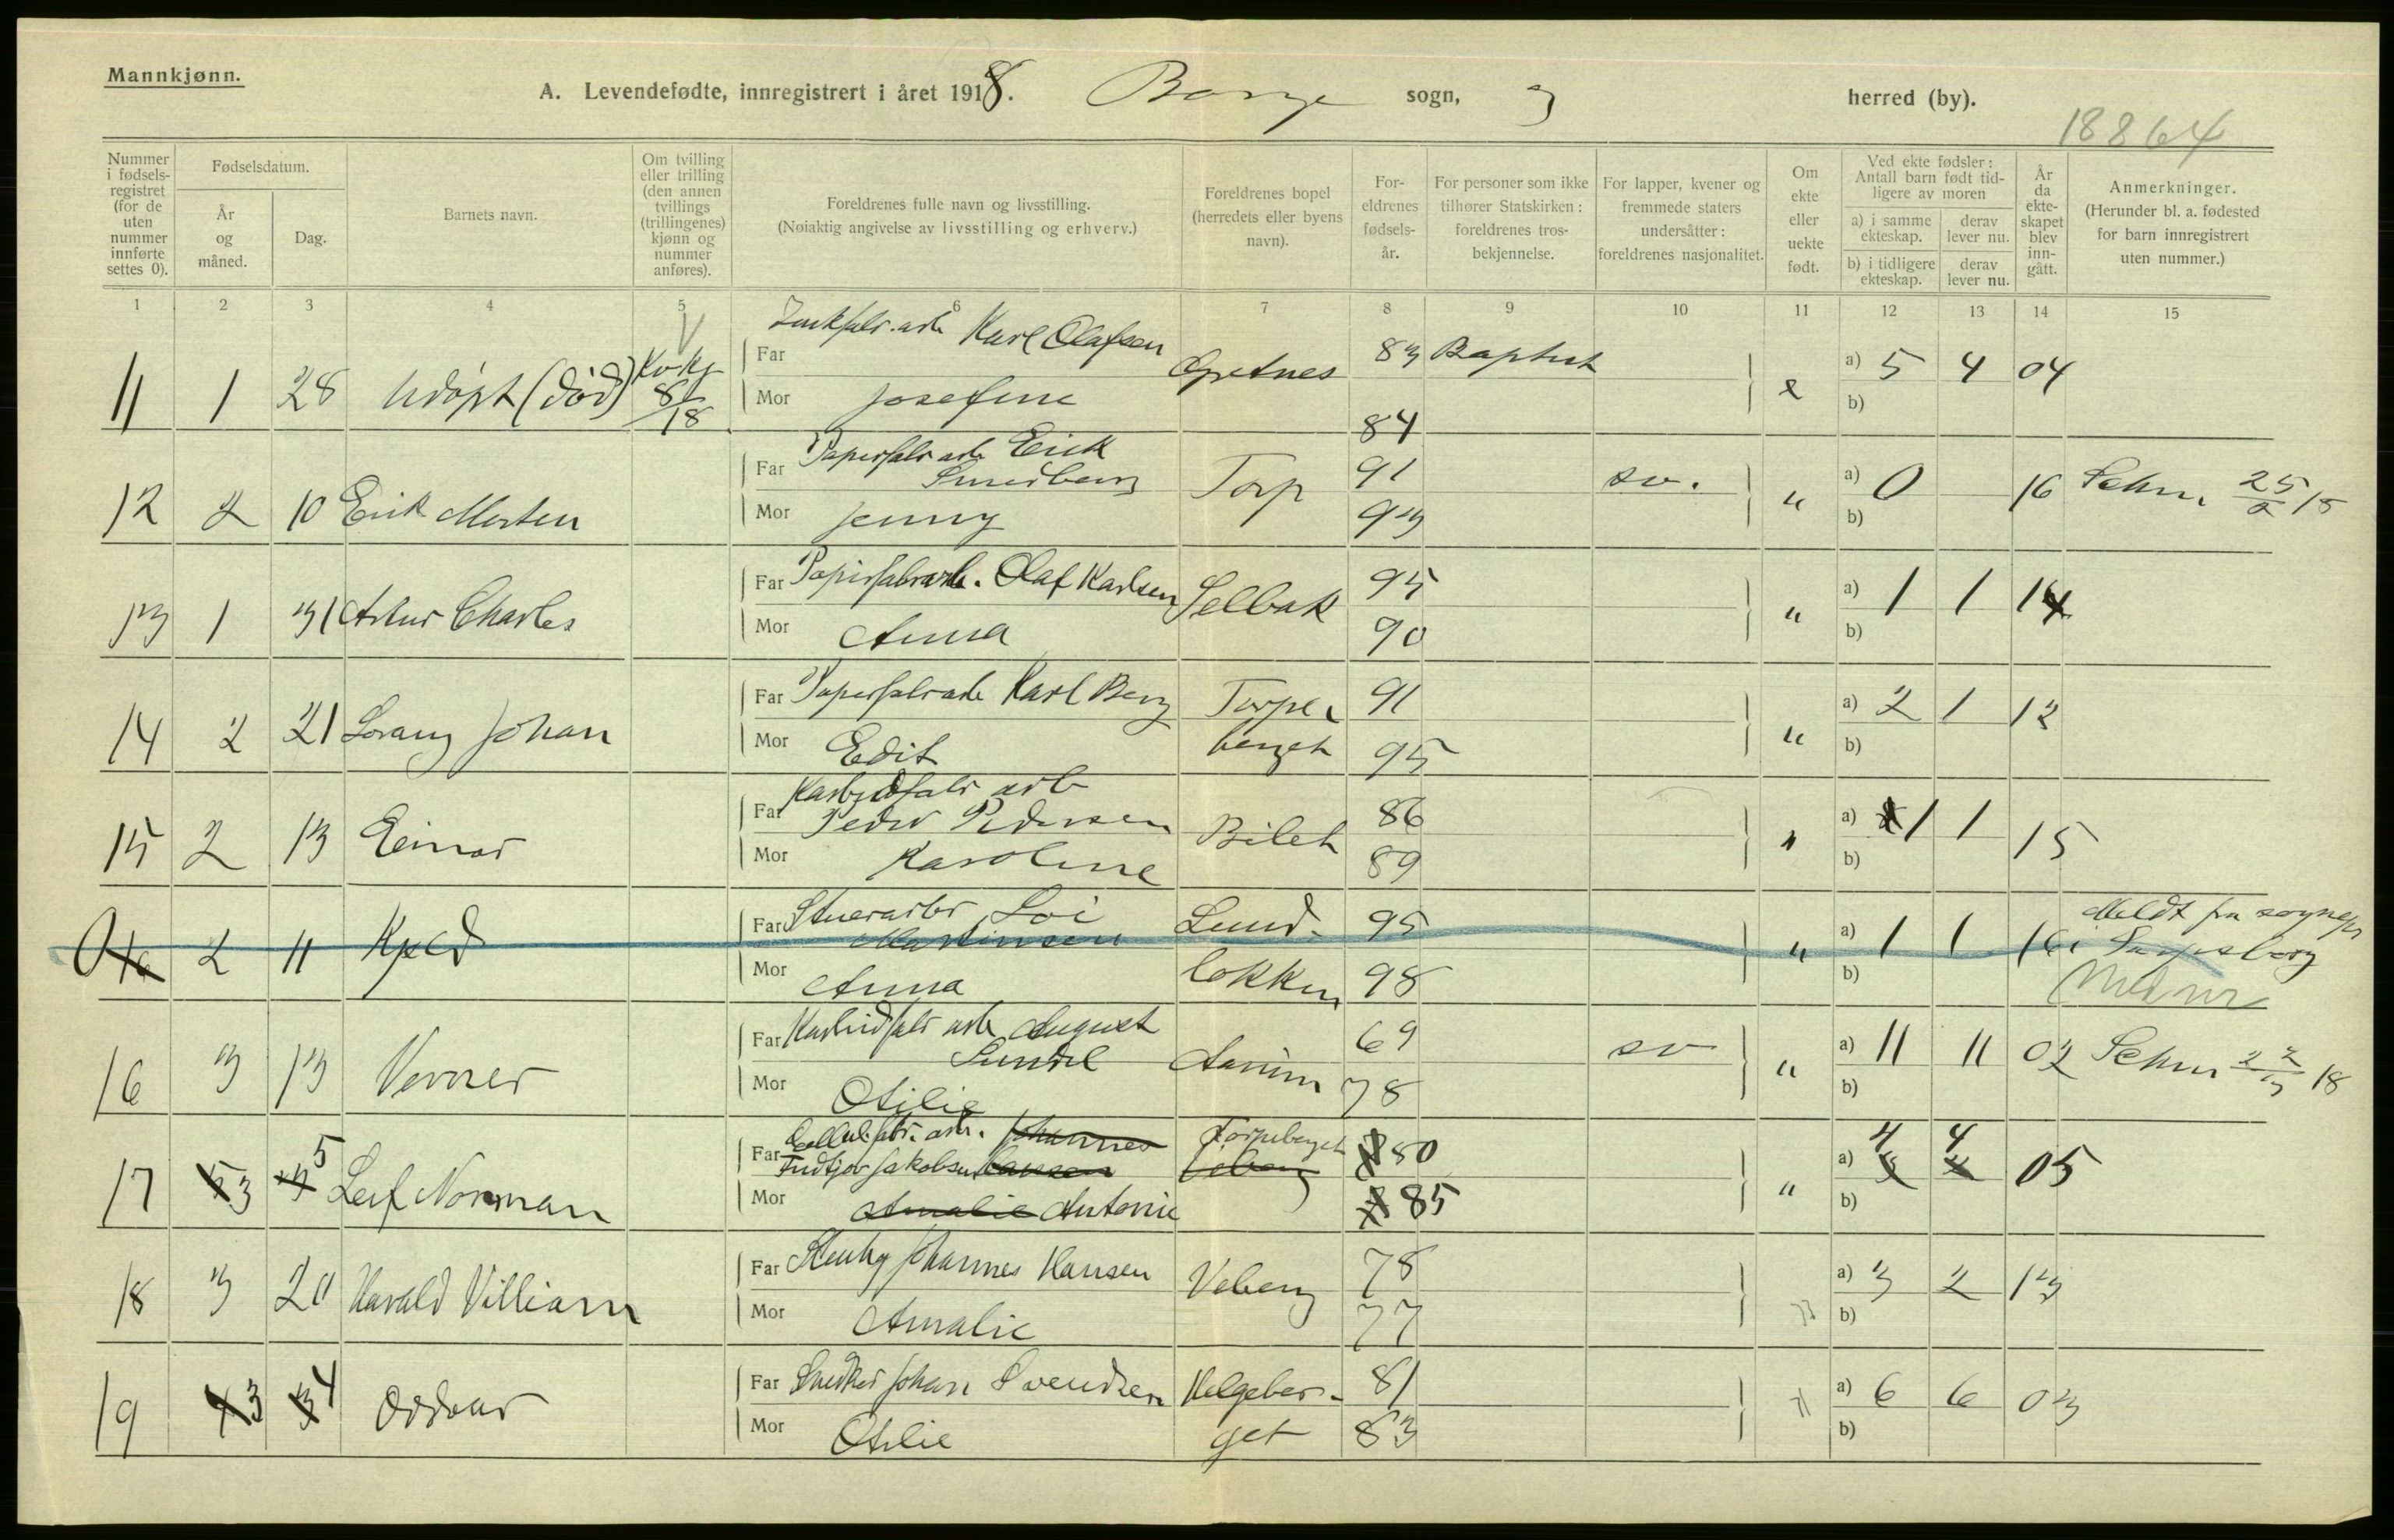 Mannkjønn.
A. Levendefødte, innregistrert i året 1918. Borge sogn, herred (by).
18864
Nummer i fødselsregistret (for de uten nummer innførte settes 0).
Fødselsdatum.
År og måned.
Dag.
Barnets navn.
Om tvilling eller trilling (den annen tvillings (trillingenes) kjønn og nummer anføres).
Foreldrenes fulle navn og livsstilling.
(Nøiaktig angivelse av livsstilling og erhverv.)
Foreldrenes bopel (herredets eller byens navn).
Foreldrenes fødselsår.
For personer som ikke tilhører Statskirken: foreldrenes trosbekjennelse.
For lapper, kvener og fremmede staters undersåtter: foreldrenes nasjonalitet.
Om ekte eller uekte født.
Ved ekte fødsler: Antall barn født tidligere av moren
a) i samme ekteskap. derav lever nu.
b) i tidligere ekteskap. derav lever nu.
År da ekteskapet blev inngått.
Anmerkninger.
(Herunder bl. a. fødested for barn innregistrert uten nummer.)
1 2 3 4 5 6 7 8 9 10 11 12 13 14 15
11 1 28 Udøpt (död) 8/18
Far Karl Olafsen Greånes 83 Baptist e a) 5 4 04
Mor Josefine 84 b)
12 2 10 Erik Morten
Far Papirfabr arb Erick Torp 91 sv. " a) 0 16 25/2 18
Mor Jenny 93 b)
13 1 31 Artur Charles
Far Papirfabrarb. Olaf Karlsen Selbak 95 " a) 1 1 14
Mor Anna 90 b)
14 2 21 Lorang Johan
Far Papirfabrarb Karl Berg Torpeberget 91 " a) 2 1 12
Mor Edit 95 b)
15 2 13 Einar
Far Karbidfabr arb Peder Pedersen Bilet 86 " a) 1 1 15
Mor Karoline 89 b)
0 16 2 11 Kjeld
Far Martinsen Lundlökken 95 " a) 1 1 16 Meldt fra sognepr i Sarpsborg
Mor Anna 98 b)
16 3 13 Verner
Far Karbidfabr arb August Sundel Aarum 69 sv " a) 11 11 02 22/3 18
Mor Otilie 78 b)
17 3 5 Leif Norman
Far Cellul.fabr. arb. Johannes Hansen Fridtjov Jakobsen Torpeberget Veberg 80 " a) 4 4 05
Mor Amalie Antonie 85 b)
18 3 20 Harald Villiam
Far Stenhg Johannes Hansen Veberg 78 " a) 3 2 13
Mor Amalie 77 b)
19 3 4 Oddvar
Far Snedker Johan Svendsen Helgeberget 81 " a) 6 6 03
Mor Otilie 83 b)